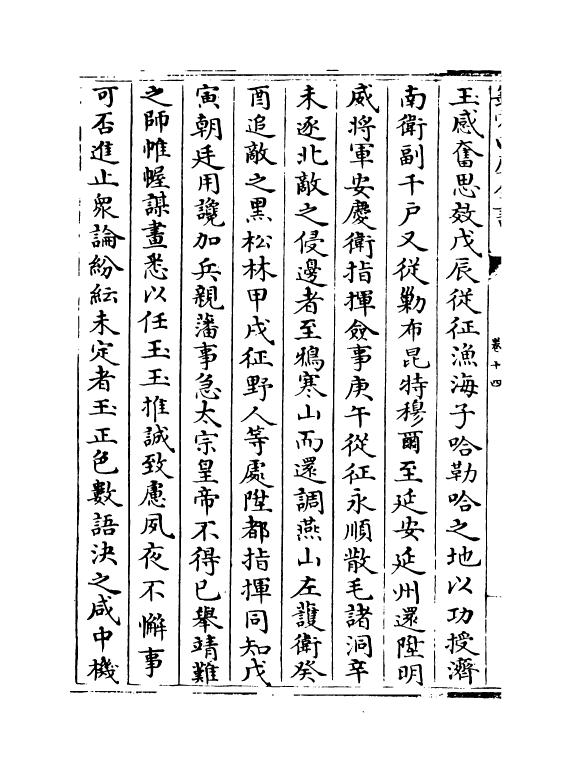 卷十四
玉感奮思效戊辰從征漁海子哈勒哈之地以功授濟
南衛副千戶又從勦布昆特穆爾至延安延州還陞明
威將軍安慶衛指揮僉事庚午從征永順散毛諸洞辛
未逐北敵之侵邊者至鴉寒山而還調燕山左護衛癸
酉追敵之黑松林甲戌征野人等處陞都指揮同知戊
寅朝廷用讒加兵親藩事急太宗皇帝不得已舉靖難
之師帷幄謀畫悉以任玉玉推誠致慮夙夜不懈事
可否進止衆論紛紜未定者玉正色數語決之咸中機